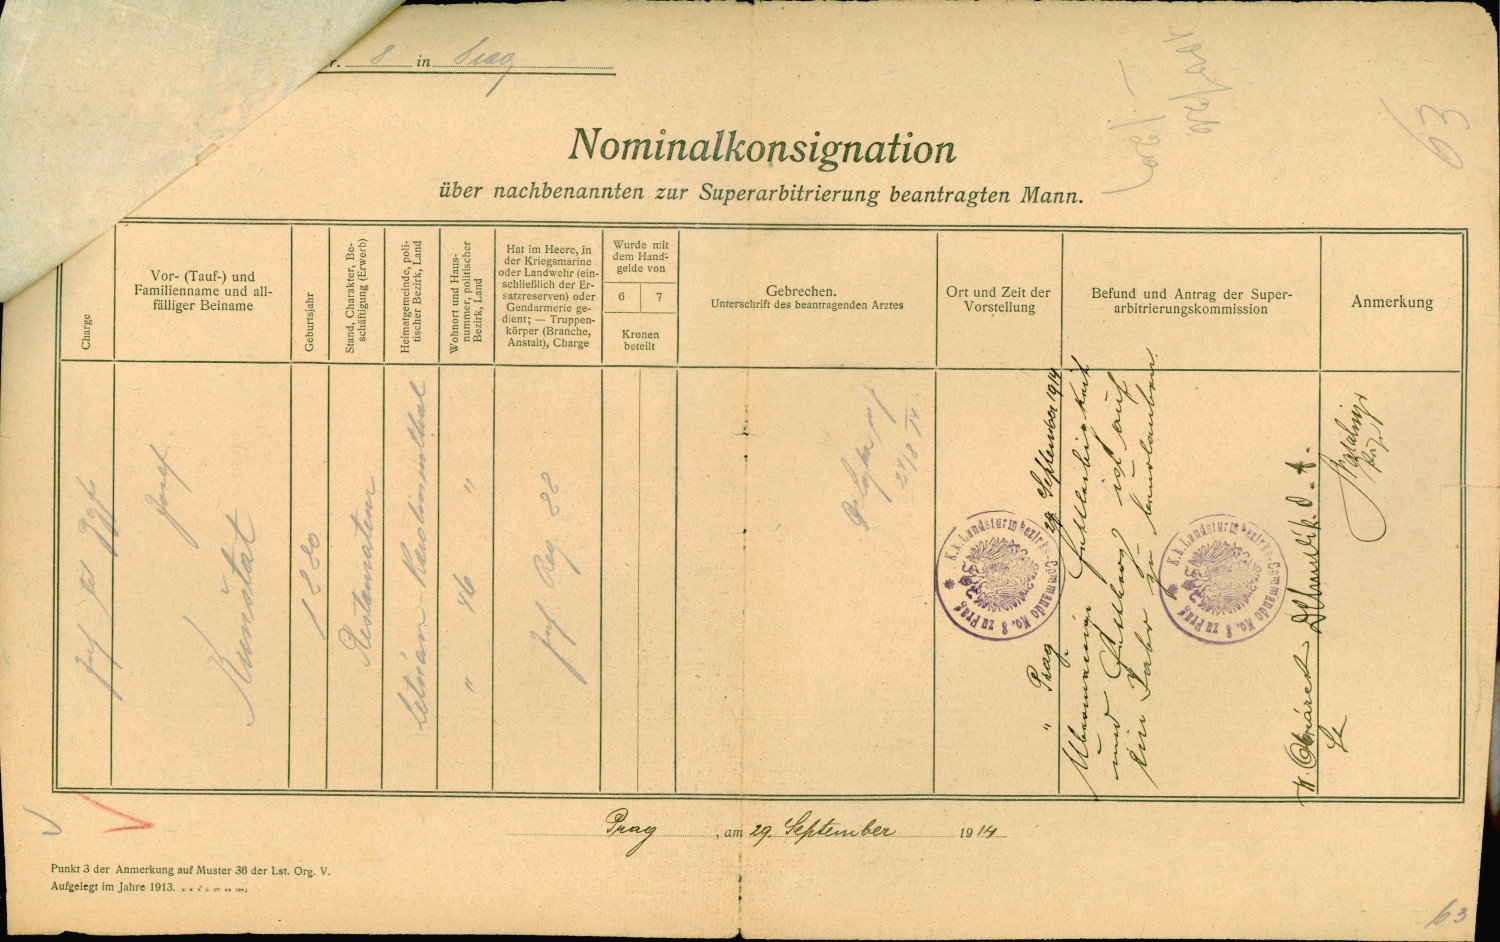 r. 8 in Prag
63
Nominalkonsignation
über nachbenannten zur Superarbitrierung beantragten Mann.
Charge
Vor- (Tauf-) und
Familienname und all-
fälliger Beiname
Geburtsjahr
Stand, Charakter, Be-
schäftigung (Erwerb)
Heimatgemeinde, poli-
tischer Bezirk, Land
Wohnort und Haus-
nummer, politischer
Bezirk, Land
Hat im Heere, in
der Kriegsmarine
oder Landwehr (ein-
schließlich der Er-
satzreserven) oder
Gendarmerie ge-
dient; — Truppen-
körper (Branche,
Anstalt), Charge
Wurde mit
dem Hand-
gelde von
6 7
Kronen
beteilt
Gebrechen.
Unterschrift des beantragenden Arztes
Ort und Zeit der
Vorstellung
Befund und Antrag der Super-
arbitrierungskommission
Anmerkung
Inf
Josef
Kunštat
1880
Restaurateur
Karolinenthal
" 46 "
Inf Reg 28
27/8 14
" Prag 29. September 1914
Übermässige Fettleibigkeit
und Fettherz ist auf
ein Jahr zu beurlauben.
K. k. Landsturmbezirks-Commando No. 8 zu Prag
K. k. Landsturmbezirks-Commando No. 8 zu Prag
Prag, am 29. September 1914
Punkt 3 der Anmerkung auf Muster 36 der Lst. Org. V.
Aufgelegt im Jahre 1913.
63